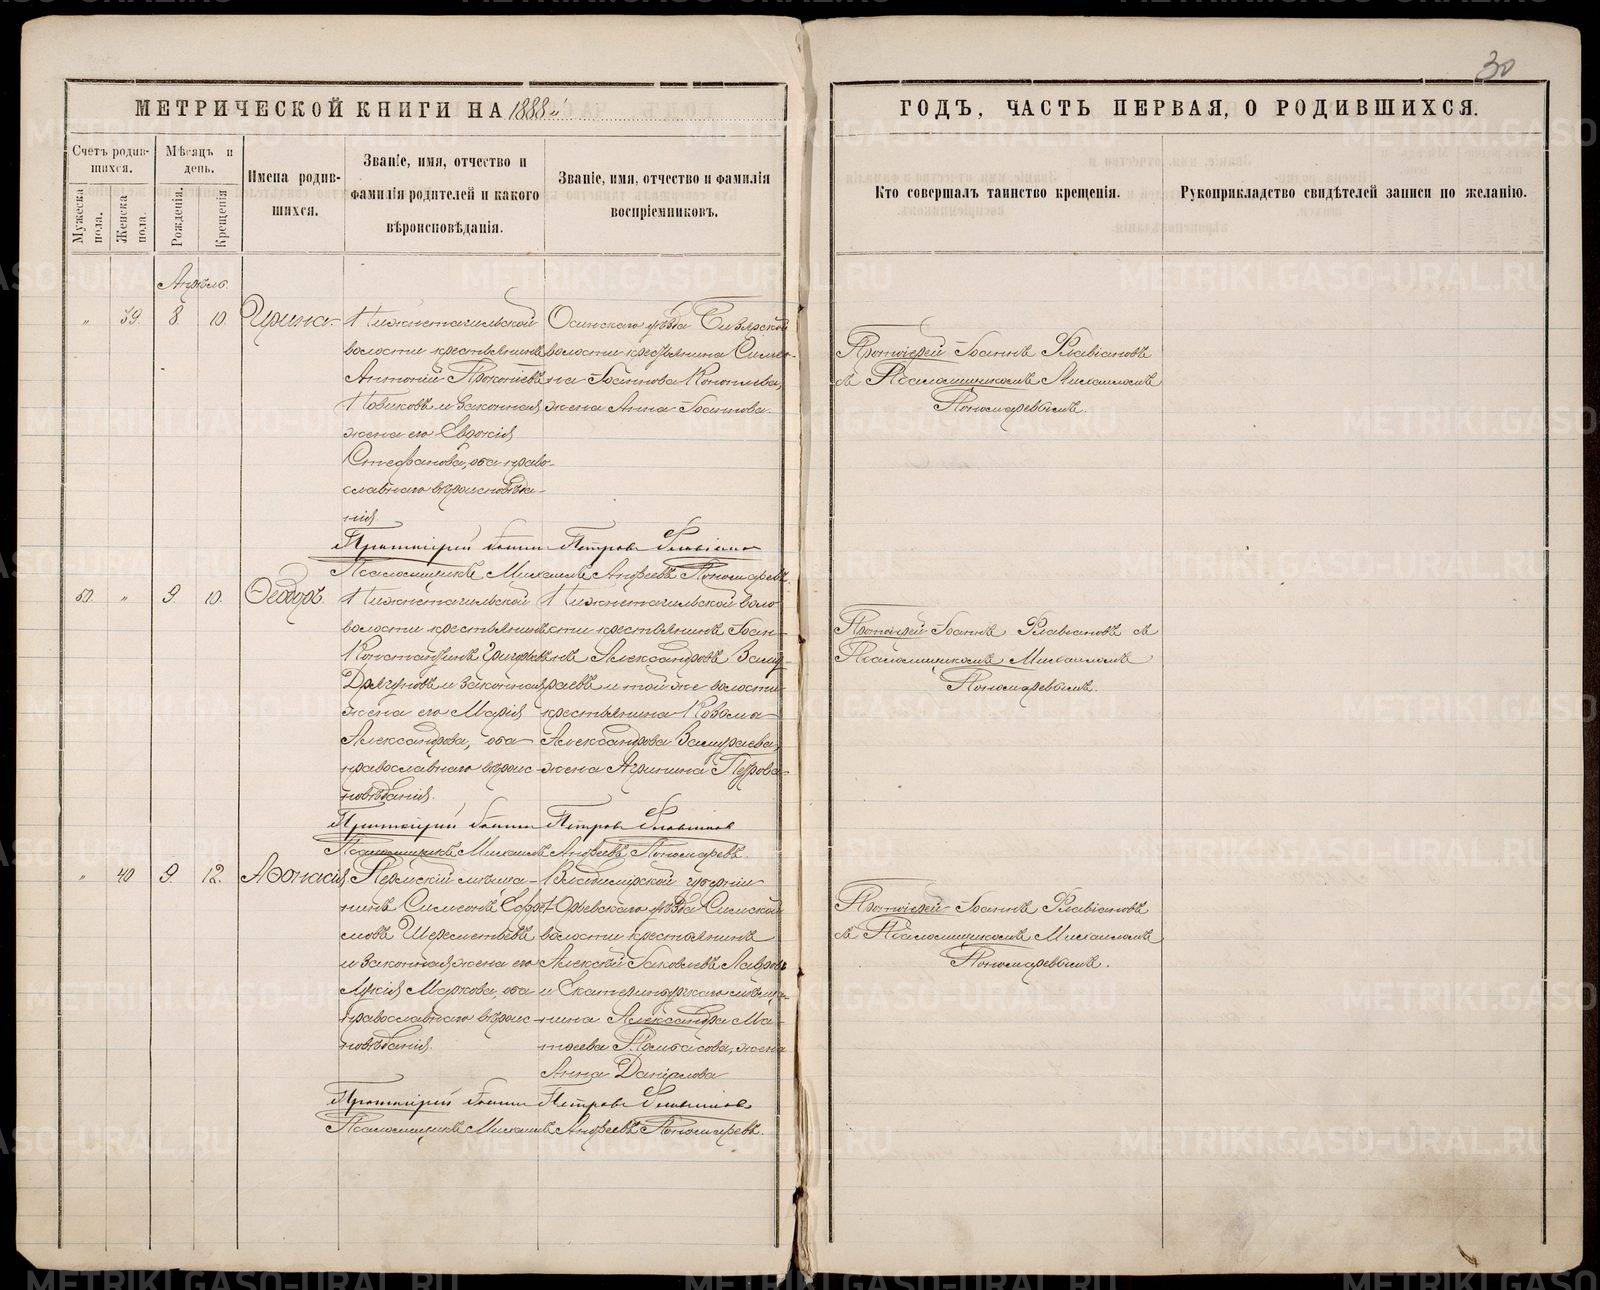 30
МЕТРИЧЕСКОЙ КНИГИ НА 1888 й
ГОДЪ, ЧАСТЬ ПЕРВАЯ, О РОДИВШИХСЯ.
Счетъ родив-
шихся.
Мѣсяцъ и
день.
Мужеска
пола.
Женска
пола.
Рожденія.
Крещенія
Имена родив-
шихся.
Званіе, имя, отчество и
фамилія родителей и какого
вѣроисповѣданія.
Званіе, имя, отчество и фамилія
воспріемниковъ.
Кто совершалъ таинство крещенія.
Рукоприкладство свидѣтелей записи по желанію.
Апрѣль.
" 39. 8. 10. Ирина.
Нижнетагильской
волости крестьянинъ
Антоній Прокопіевъ
Новиковъ и законная
жена его Евдокія
Стефанова, оба право-
славнаго вѣроисповѣда-
нія
Осинскаго уѣзда Бизярской
волости крестьянина Симео-
на Іоаннова Коноплева,
жена Анна Іоаннова.
Протоіерей Іоаннъ Флавіановъ
съ Псаломщикомъ Михаиломъ
Пономаревымъ.
Протоіерей Іоаннъ Петровъ Флавіановъ
Псаломщикъ Михаилъ Андреевъ Пономаревъ.
50. " 9. 10. Ѳеодоръ.
Нижнетагильской
волости крестьянинъ
Константинъ Григорьевъ
Драгуновъ и законная
жена его Марія
Александрова, оба
православнаго вѣроис-
повѣданія.
Нижнетагильской воло
сти крестьянинъ Іоан-
нъ Александровъ
и той же волости
крестьянина Козьма
Александрова
жена Агрипина Петрова
Протоіерей Іоаннъ Флавіановъ съ
Псаломщикомъ Михаиломъ
Пономаревымъ.
Протоіерей Іоаннъ Петровъ Флавіановъ
Псаломщикъ Михаилъ Андреевъ Пономаревъ.
" 40 9. 12. Аѳонасія
Пермскій мѣща-
нинъ Симеонъ Ефре-
мовъ Шереметьевъ
и законная жена его
Лукія Маркова, оба
православнаго вѣроис-
повѣданія.
Владимірской губерніи
Юрьевскаго уѣзда Симской
волости крестьянинъ
Алексѣй Іаковлевъ Лавровъ
и Екатеринбургскаго мѣща-
нина Александра Ма-
тѳеева жена
Анна Даніилова
Протоіерей Іоаннъ Флавіановъ
съ Псаломщикомъ Михаиломъ
Пономаревымъ.
Протоіерей Іоаннъ Петровъ Флавіановъ
Псаломщикъ Михаилъ Андреевъ Пономаревъ.
METRIKI.GASO-URAL.RU